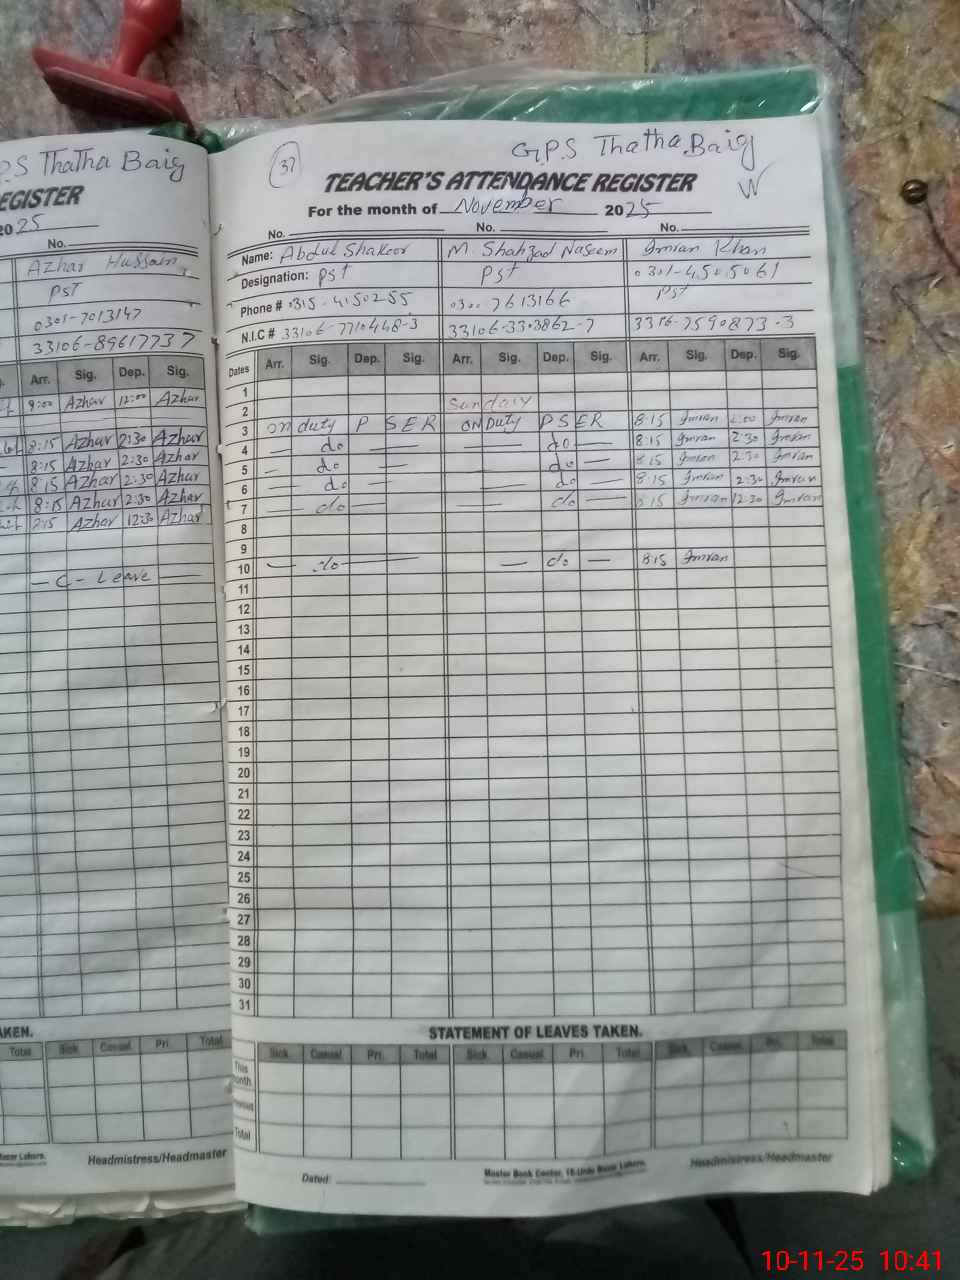 P.S Thatha Baig
EGISTER
2025
No.
Azhar Hussain
PST
0301-7013147
33106-89617737
Arr. Sig. Dep. Sig.
9:00 Azhar 12:00 Azhar
8:15 Azhar 2:30 Azhar
8:15 Azhar 2:30 Azhar
8:15 Azhar 2:30 Azhar
8:15 Azhar 2:30 Azhar
8:15 Azhar 12:30 Azhar
— C - Leave —
AKEN.
Total Sick Casual Pri. Total
Headmistress/Headmaster
37
G.P.S Thatha Baig
TEACHER'S ATTENDANCE REGISTER
For the month of November 2025
No. No. No.
Name: Abdul Shakoor M. Shahzad Naseem Imran Khan
Designation: PST PST 0301-4505061
Phone # 0315-4150255 0300-7613166 PST
N.I.C # 33106-7710448-3 33106-3303862-7 3316-7590873-3
Dates Arr. Sig. Dep. Sig. Arr. Sig. Dep. Sig. Arr. Sig. Dep. Sig.
1
2 Sunday
3 on duty P S E R ON Duty P S E R 8:15 Imran 2:00 Imran
4 — do — — do — 8:15 Imran 2:30 Imran
5 — do — — do — 8:15 Imran 2:30 Imran
6 — do — — do — 8:15 Imran 2:30 Imran
7 — do — — do — 8:15 Imran 12:30 Imran
8
9
10 — do — — do — 8:15 Imran
11
12
13
14
15
16
17
18
19
20
21
22
23
24
25
26
27
28
29
30
31
STATEMENT OF LEAVES TAKEN.
Sick. Casual Pri. Total Sick. Casual Pri. Total Sick. Casual Pri. Total
This
Total
Dated:
Master Book Center, 18-Urdu Bazar Lahore.
Headmistress/Headmaster
10-11-25 10:41